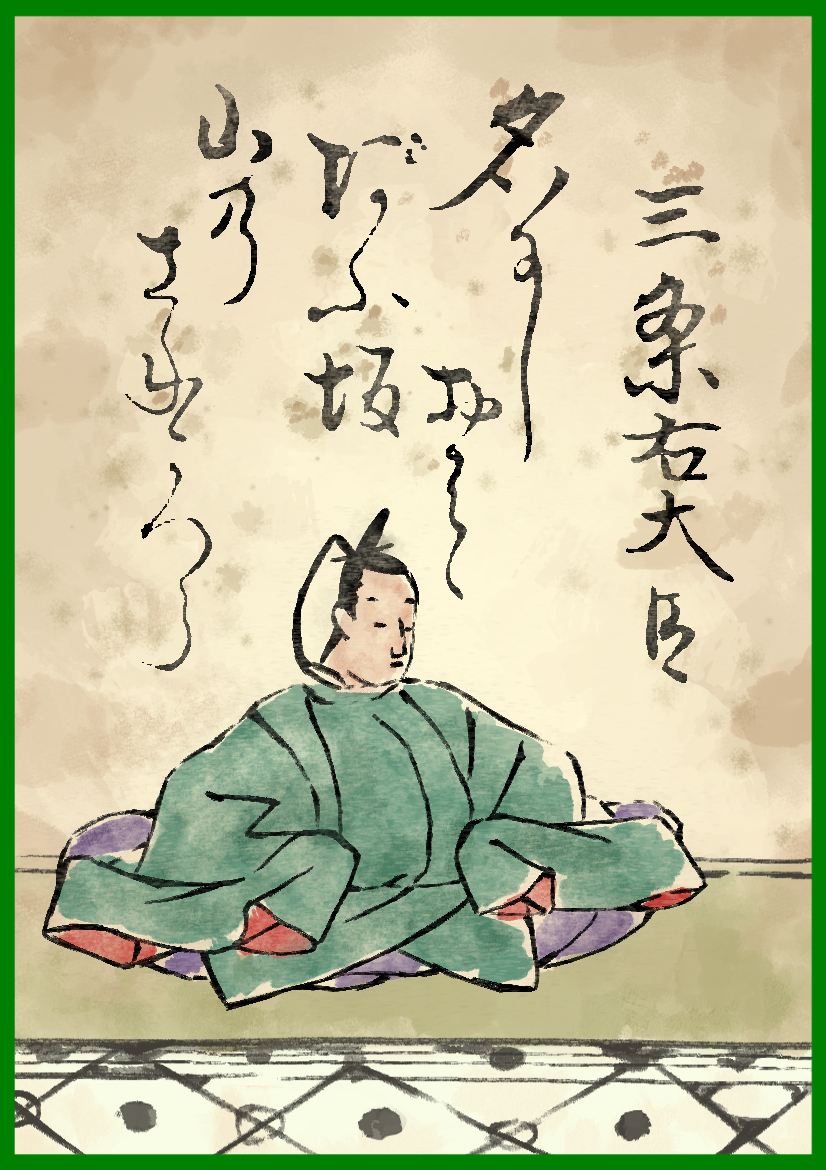 三条右大臣
名にし
おはゝ
あふ坂
山乃
さねか
つら